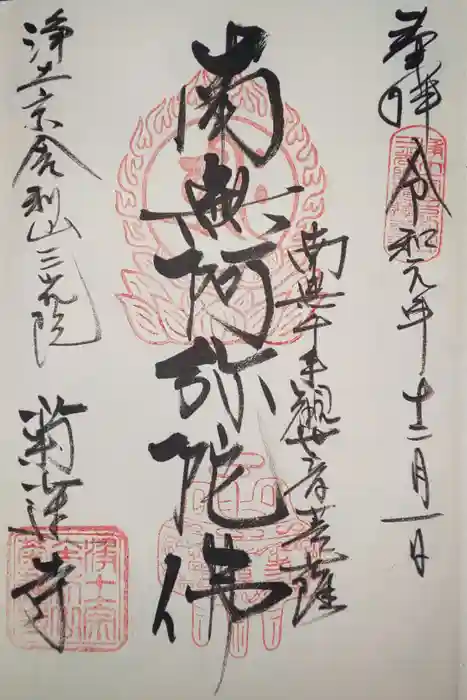 奉拝 令和元年 十二月一日
南無千手觀世音菩薩
南無阿弥陀佛
浄土宗舎利山三花院
菊蓮寺